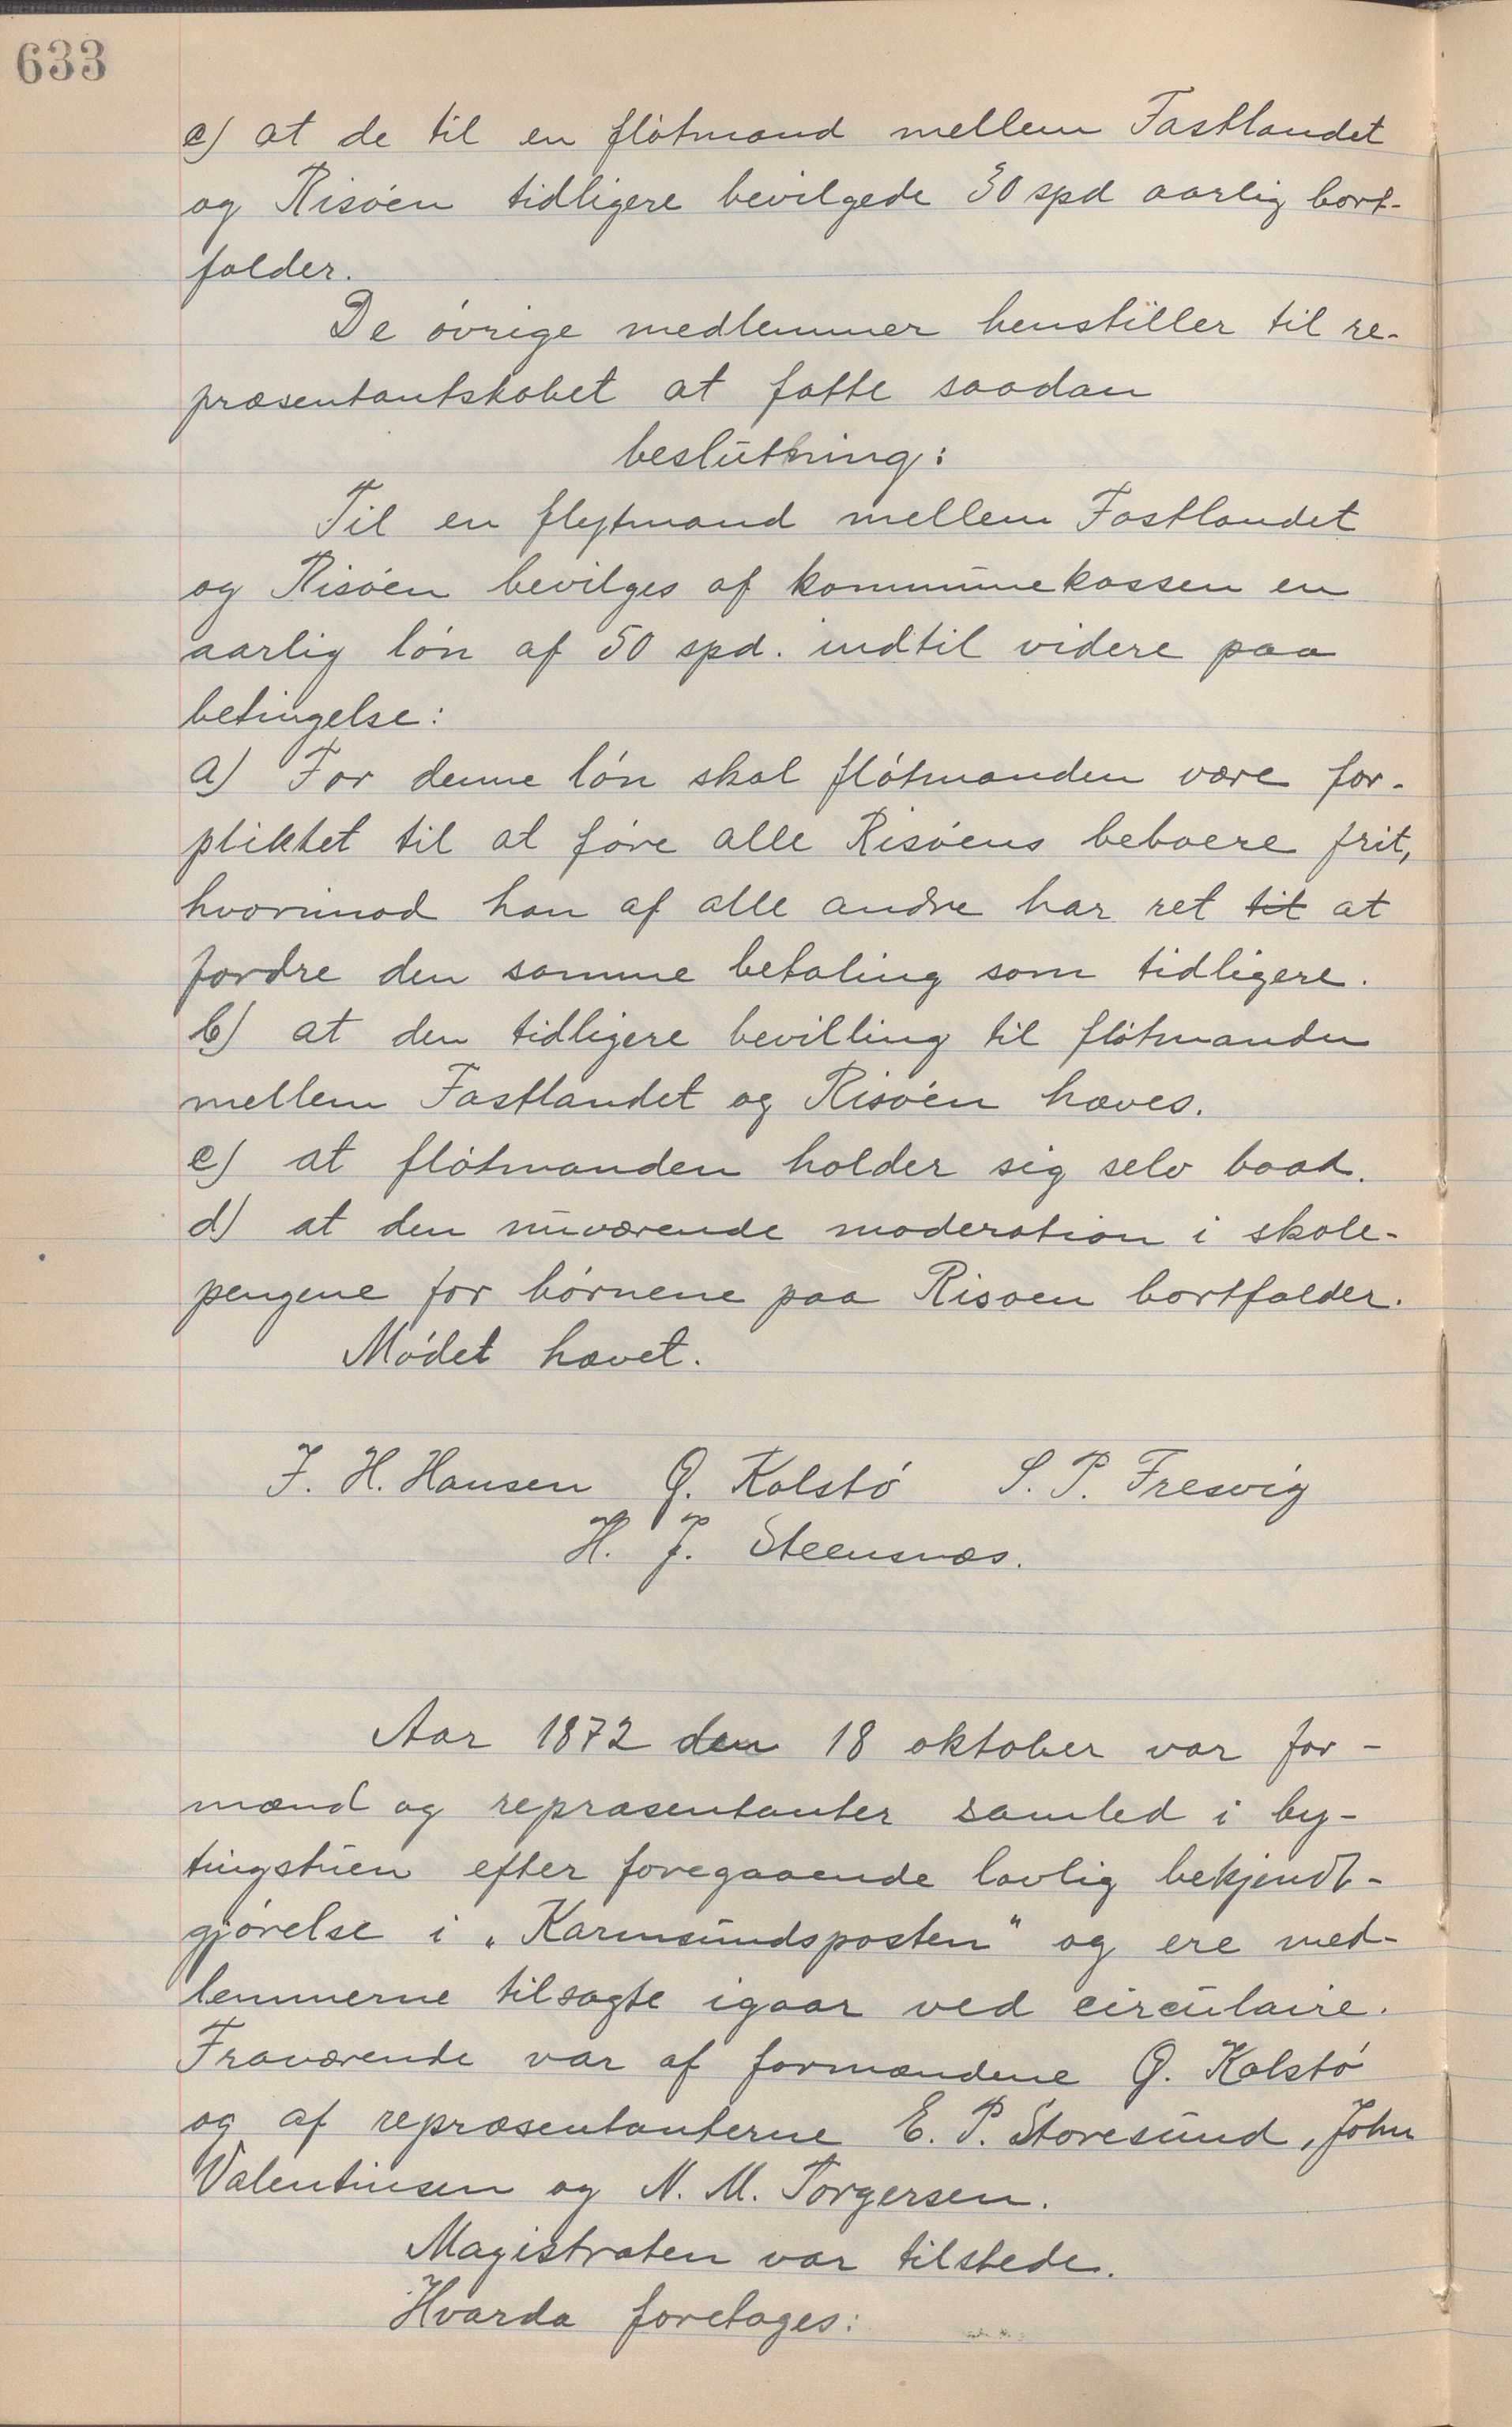 633
e) at de til en flötmand mellem Fastlandet
og Risöen tidligere bevilgede 30 spd aarlig bort-
falder.
De övrige medlemmer henstiller til re-
præsentantskabet at fatte saadan
beslutning:
Til en flytmand mellem Fastlandet
og Risöen bevilges af kommunekassen en
aarlig lön af 50 spd. indtil videre paa
betingelse:
a) For denne lön skal flötmanden være for-
pliktet til at före alle Risöens beboere frit,
hvorimod han af alle andre har ret til at
fordre den samme betaling som tidligere.
b) at den tidligere bevilling til flötmanden
mellem Fastlandet og Risöen hæves.
c) at flötmanden holder sig selv baad.
d) at den nuværende moderation i skole-
pengene for börnene paa Risoen bortfalder.
Mödet hævet.
J. H. Hansen O. Kolstö S. P. Fresvig
H. J. Steensnæs.
Aar 1872 den 18 oktober var for-
mænd og repræsentanter samled i by-
tingstuen efter foregaaende lovlig bekjendt-
gjörelse i „Karmsundsposten" og ere med-
lemmerne tilsagte igaar ved circulaire.
Fraværende var af formændene O. Kolstö
og af repræsentanterne E. P. Storesund, John
Valentinsen og N. M. Torgersen.
Magistraten var tilstede.
Hvorda foretages: